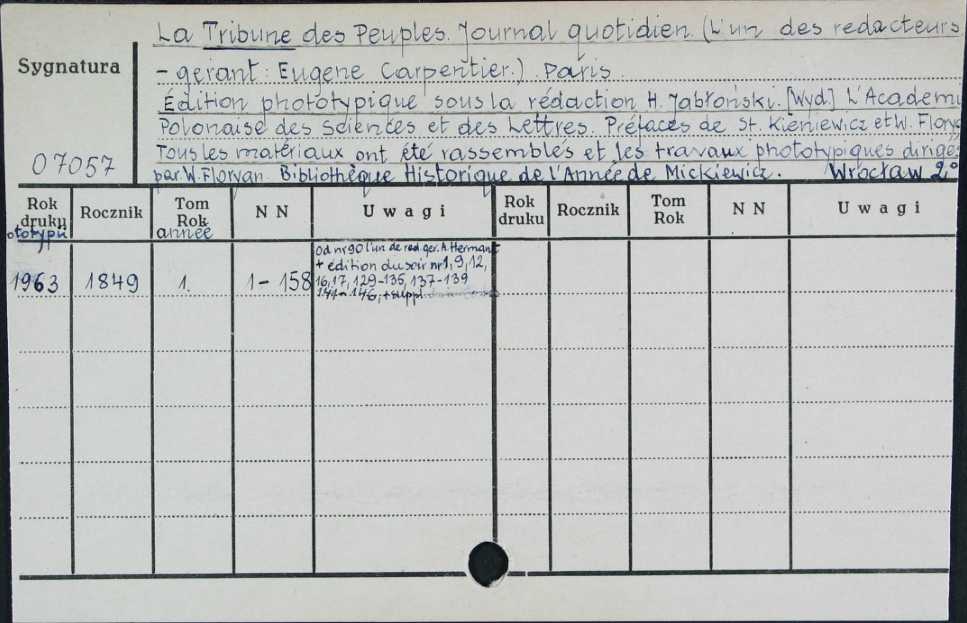 La Tribune des Peuples. Journal quotidien. (L'un des redacteurs
- gerant: Eugene Carpentier.) Paris.
Sygnatura
Édition phototypique sous la rédaction H. Jabłoński. [Wyd.] L'Academi
Polonaise des Sciences et des Lettres. Préfaces de St. Kieniewicz et W. Florya
07057
Tous les matériaux ont été rassemblés et les travaux phototypiques dirigés
par W. Floryan. Bibliothèque Historique de l'Année de Mickiewicz. Wrocław 2°
Rok druku Rocznik Tom Rok N N Uwagi Rok druku Rocznik Tom Rok N N Uwagi
ototypu année
1963 1849 1. 1-158
Od nr 90 l'un de red. ger. A. Hermant
+ édition du soir nr 1, 9, 12,
16, 17, 129-135, 137-139
141-146, + suppl.